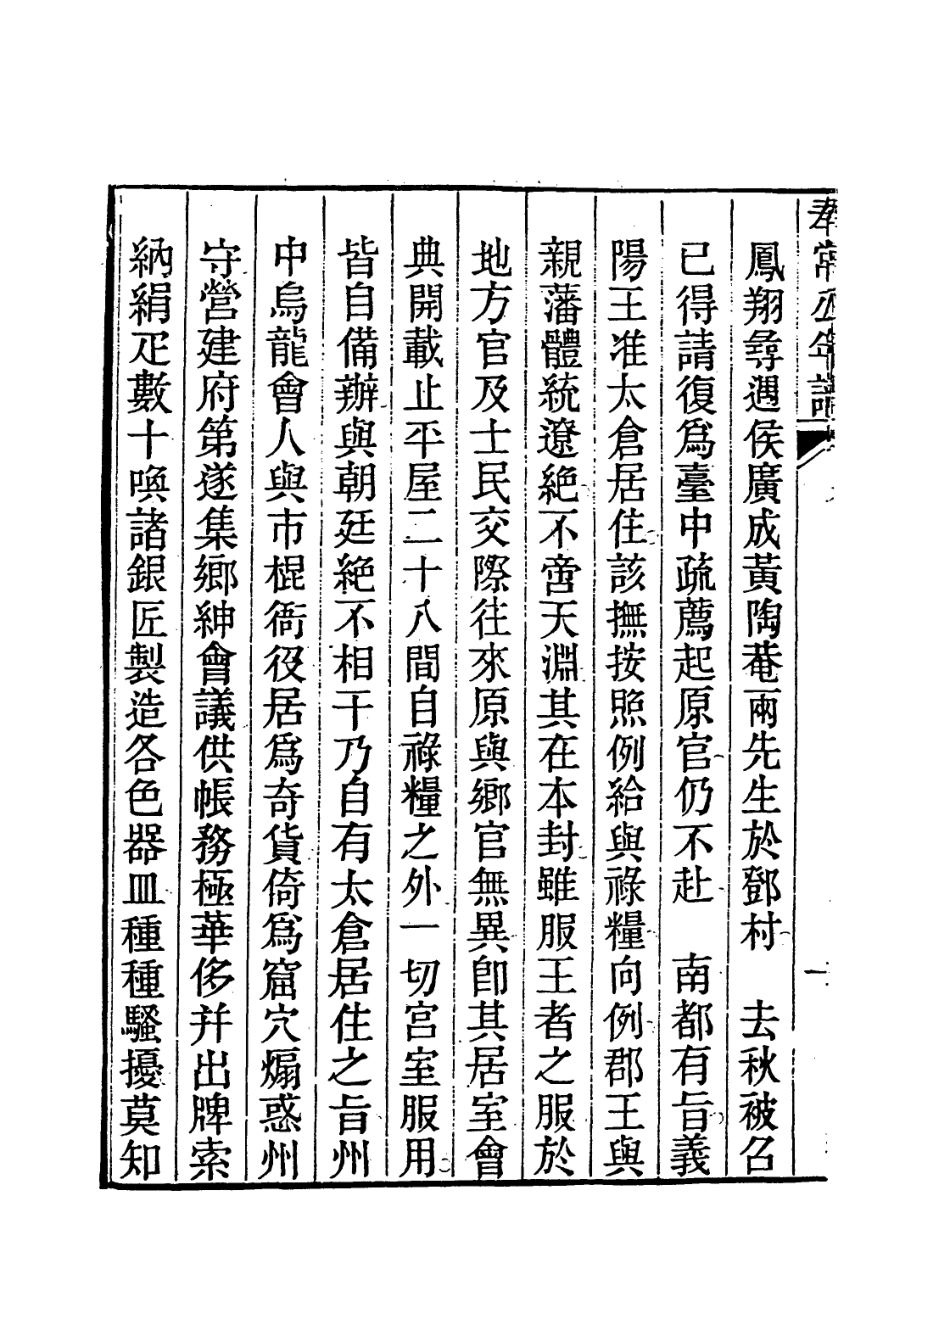 奉常公年譜
鳳翔尋遇侯廣成黃陶菴兩先生於鄧村　去秋被召
已得請復爲臺中疏薦起原官仍不赴　南都有旨義
陽王准太倉居住該撫按照例給與祿糧向例郡王與
親藩體統遼絕不啻天淵其在本封雖服王者之服於
地方官及士民交際往來原與鄉官無異卽其居室會
典開載止平屋二十八間自祿糧之外一切宮室服用
皆自備辦與朝廷絕不相干乃自有太倉居住之旨州
中烏龍會人與市棍衙役居爲奇貨倚爲窟穴煽惑州
守營建府第遂集鄉紳會議供帳務極華侈幷出牌索
納絹疋數十喚諸銀匠製造各色器皿種種騷擾莫知